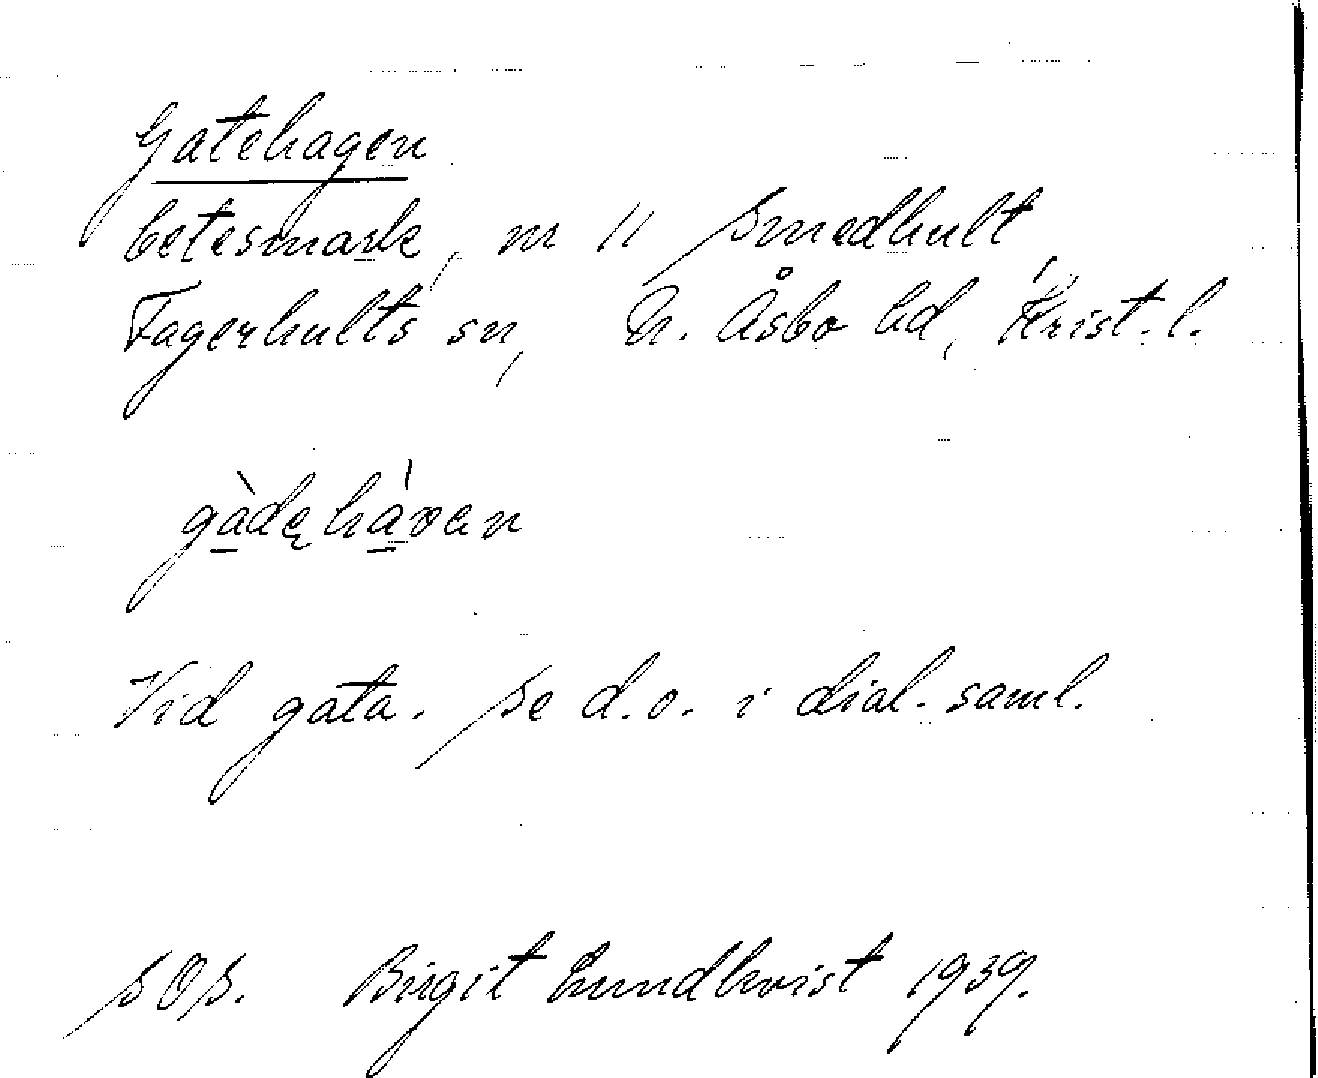 Gatehagen
betesmark, nr 11 Smedhult,
Fagerhults sn, N. Åsbo hd, Krist. l.
gàdęhàven
Vid gata. Se d.o. i dial. saml.
SOS. Birgit Lundkvist 1939.